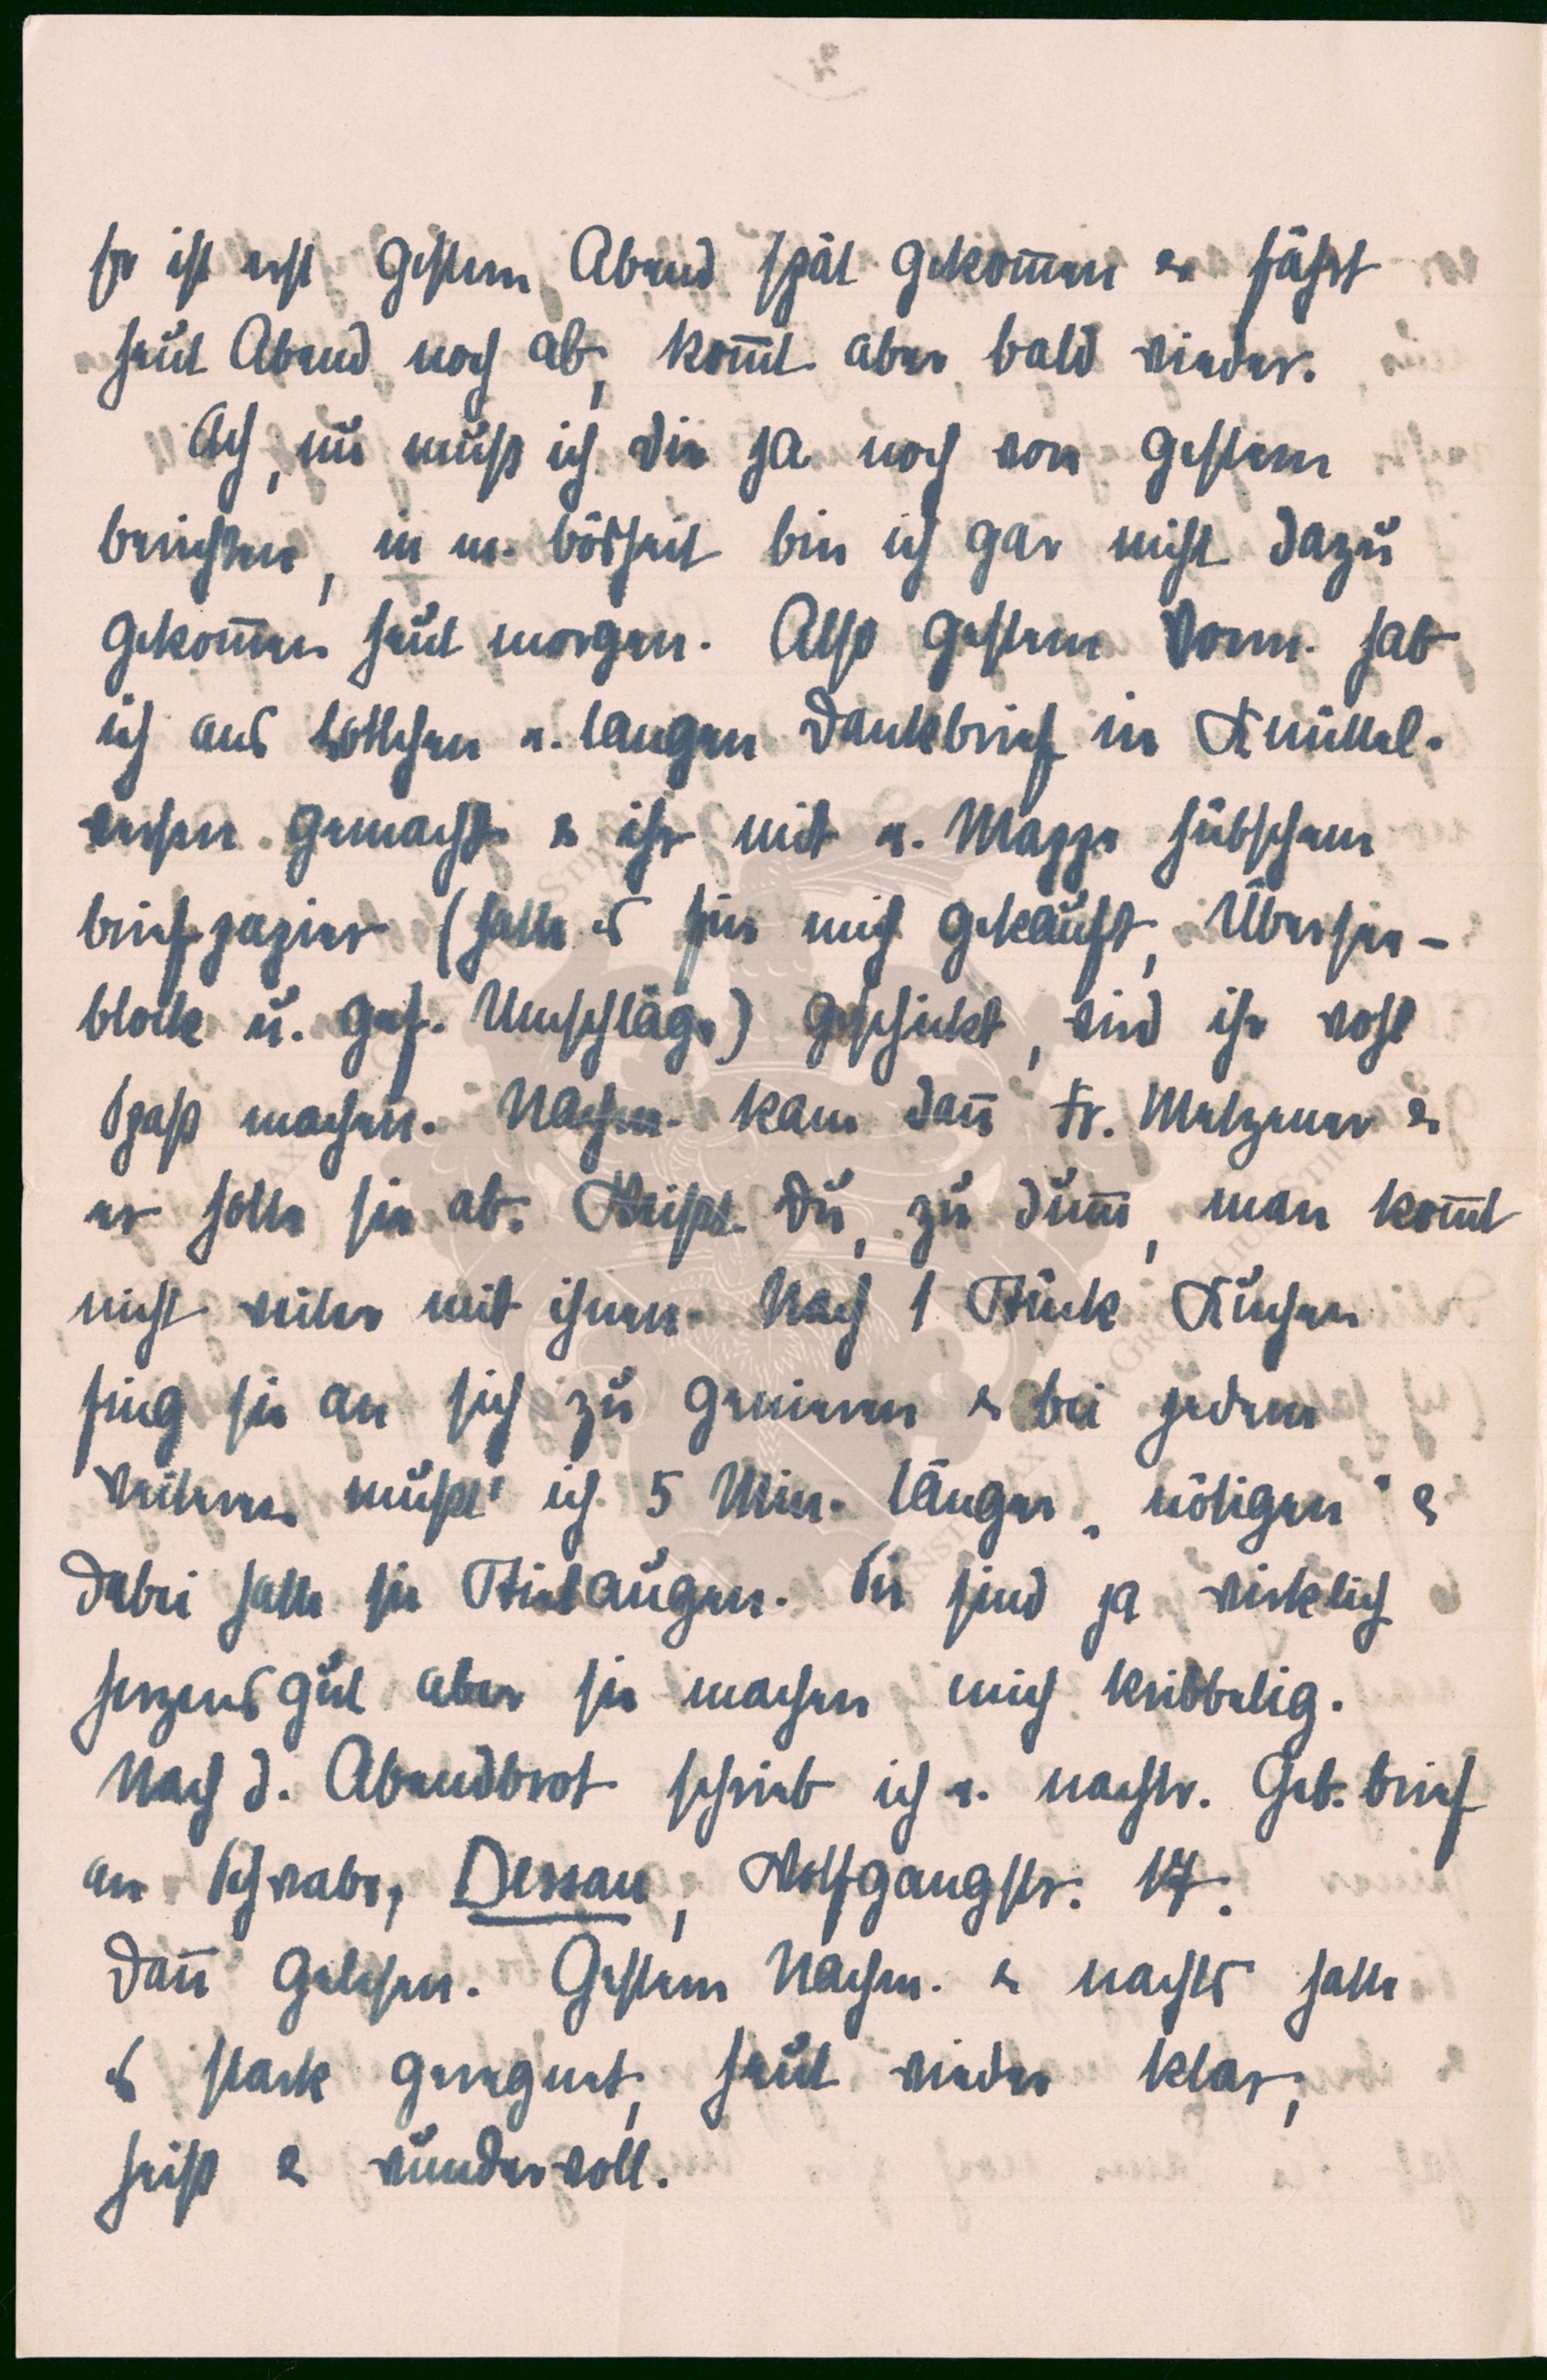 Er ist erst gestern Abend spät gekom̄en & fährt
heut Abend noch ab, kom̄t aber bald wieder.
Ach, nu muß ich Dir ja noch von gestern
berichten, in m. Bösheit bin ich gar nicht dazu
gekom̄en heut morgen. Also gestern Vorm. hab
ich aus Lottchen e. langen Dankbrief in Knüttel-
versen gemacht & ihr mit e. Mappe hübschem
Briefpapier (hatte es für mich gekauft, Übersee-
block u. gef. Umschläge) geschickt, wird ihr wohl
Spaß machen. Nachm. kam dan̄ Fr. Melzener &
er holte sie ab. Weißt Du, zu dum̄, man kom̄t
nicht weiter mit ihnen. Nach 1 Stück Kuchen
fing sie an sich zu genieren & bei jedem
weiteren mußt' ich 5 Min. länger „nötigen" &
dabei hatte sie Stielaugen. Sie sind ja wirklich
herzensgut aber sie machen mich kribbelig.
Nach d. Abendbrot schrieb ich e. nachtr. Geb. brief
an Schwabe, Dessau, Wolfgangstr. 17.
Dan̄ gelesen. Gestern Nachm. & nachts hatte
es stark geregnet, heut wieder klar,
heiß & wundervoll.